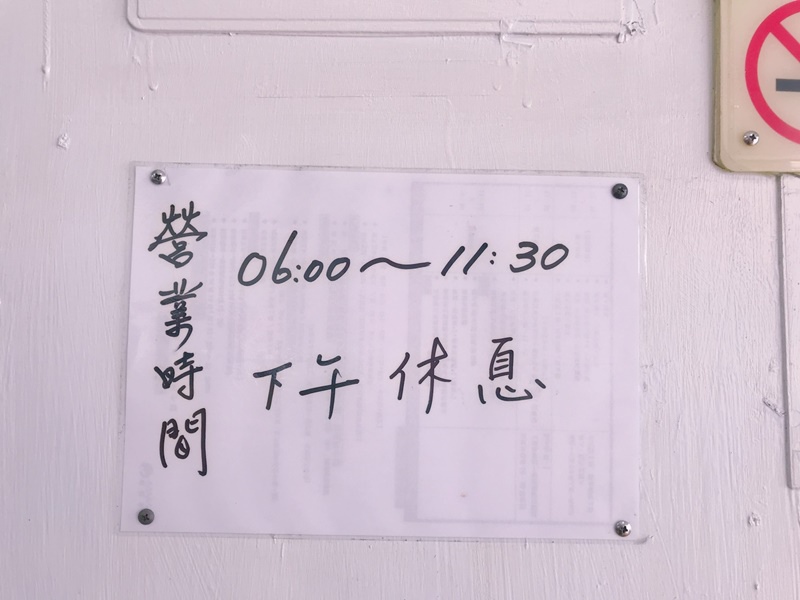 營業時間
06:00～11:30
下午休息